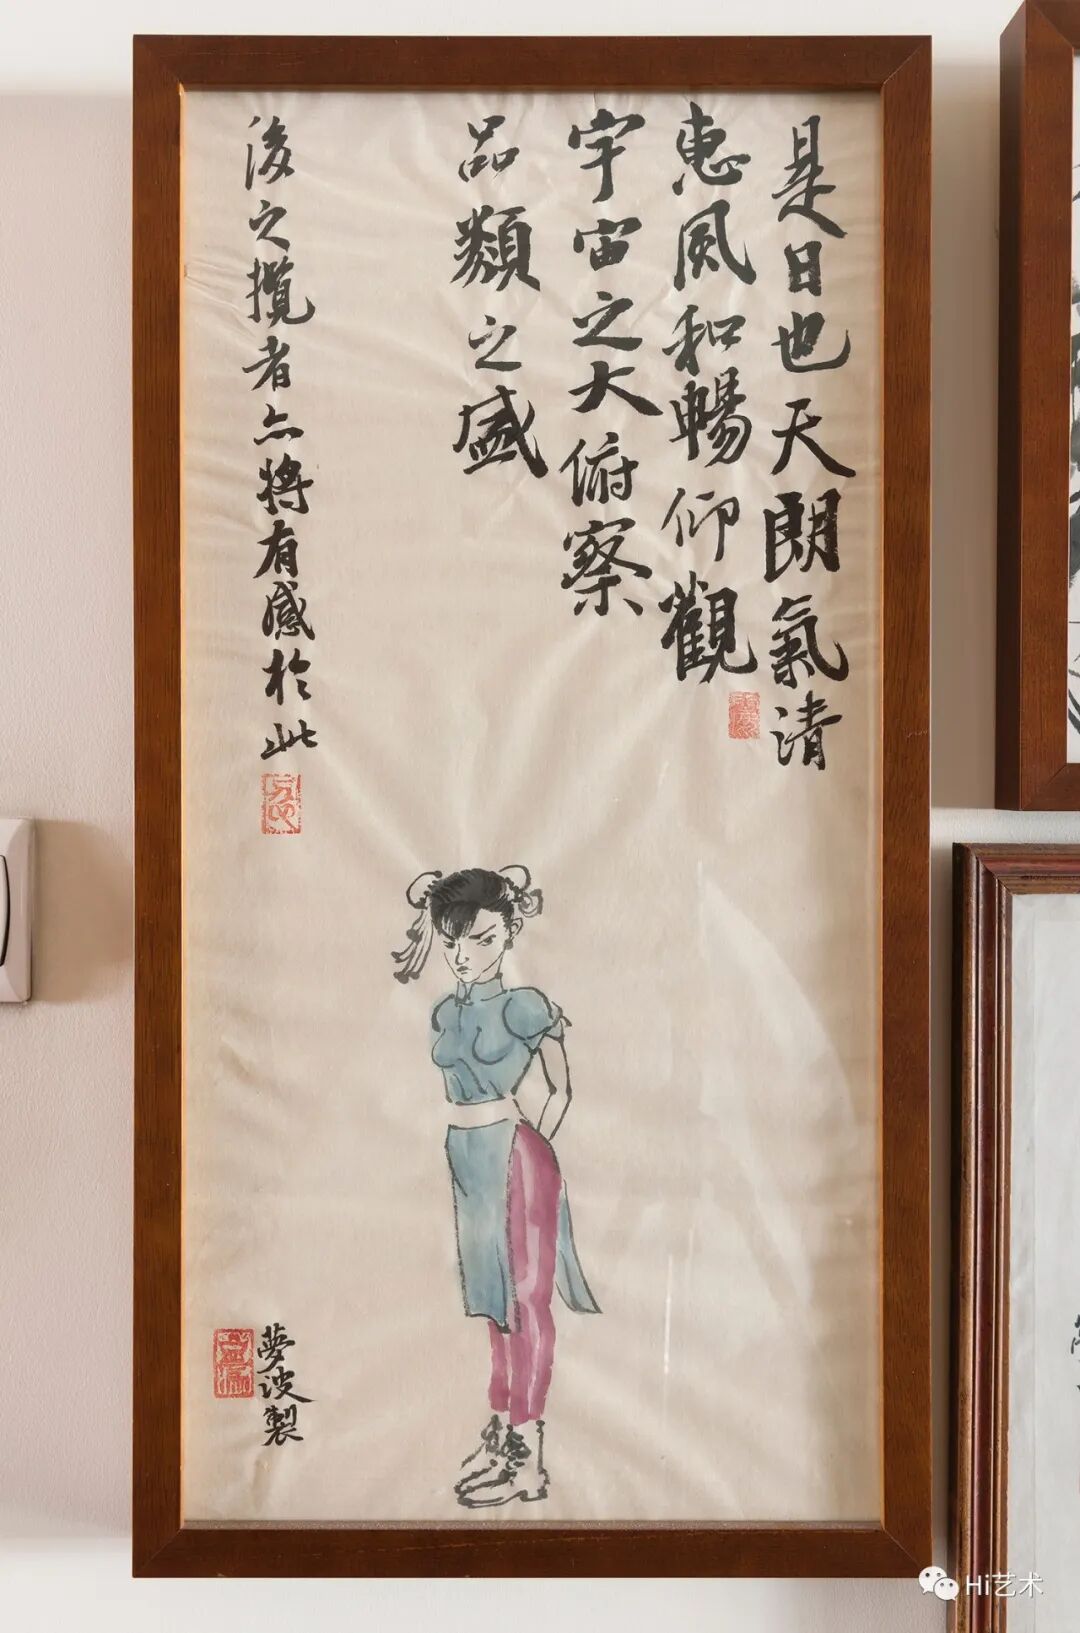 是日也天朗氣清
惠風和暢仰觀
宇宙之大俯察
品類之盛
後之攬者亦將有感於此
夢波製
Hi艺术